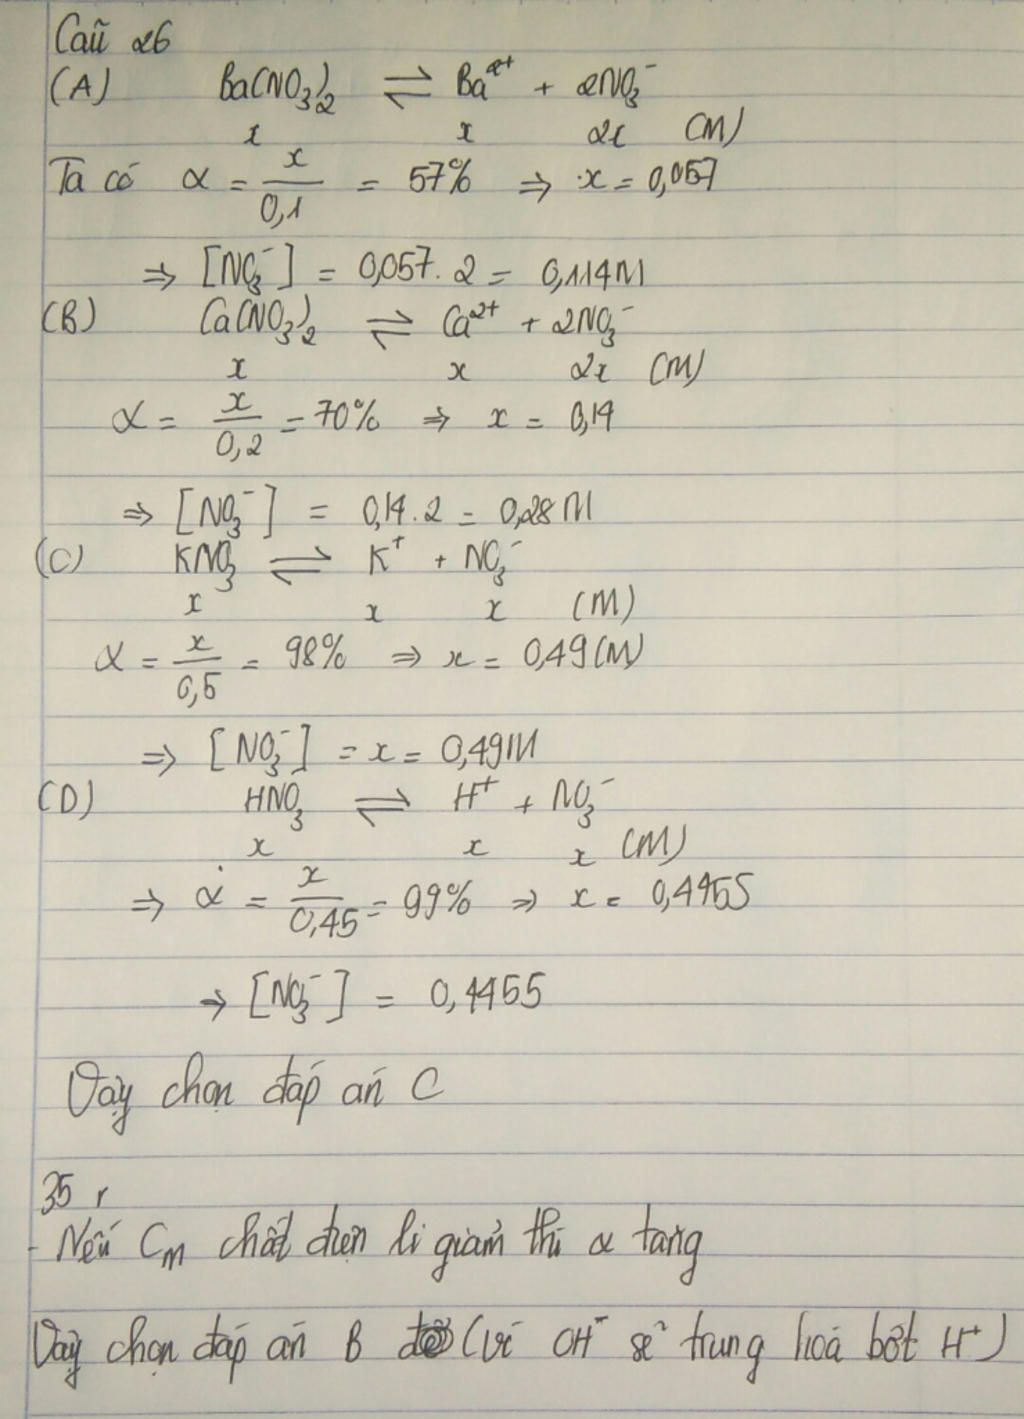 Câu 26
(A) Ba(NO₃)₂ ⇌ Ba²⁺ + 2NO₃⁻
x x 2x (M)
Ta có α = x/0,1 = 57% ⇒ x = 0,057
⇒ [NO₃⁻] = 0,057 . 2 = 0,114M
(B) Ca(NO₃)₂ ⇌ Ca²⁺ + 2NO₃⁻
x x 2x (M)
α = x/0,2 = 70% ⇒ x = 0,14
⇒ [NO₃⁻] = 0,14 . 2 = 0,28M
(C) KNO₃ ⇌ K⁺ + NO₃⁻
x x x (M)
α = x/0,5 = 98% ⇒ x = 0,49(M)
⇒ [NO₃⁻] = x = 0,49M
(D) HNO₃ ⇌ H⁺ + NO₃⁻
x x x (M)
⇒ α = x/0,45 = 99% ⇒ x = 0,4455
⇒ [NO₃⁻] = 0,4455
Vậy chọn đáp án C
35,
- Nếu Cm chất điện li giảm thì α tăng
Vậy chọn đáp án B (vì OH⁻ sẽ trung hoà bớt H⁺)